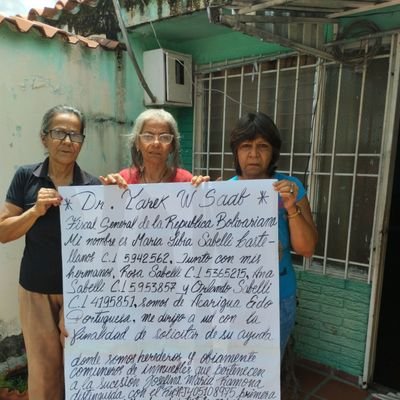 * Dr. Tarek W Saab *
Fiscal General de la Republica Bolivariana
Mi nombre es Maria Libia Sabelli Caste-
llanos C.I 5942562, Junto con mis
hermanos, Rosa Sabelli C.I 5365215, Ana
Sabelli C.I 5953857 y Orlando Sibelli
C.I 4195851, somos de Acarigua Edo
Portuguesa, me dirijo a ud con la
finalidad de solicitar de su ayuda
donde somos herederos y
comuneros de inmuebles que pertenecen
a la sucesión Josefina María Ramona
distinguida con el primera